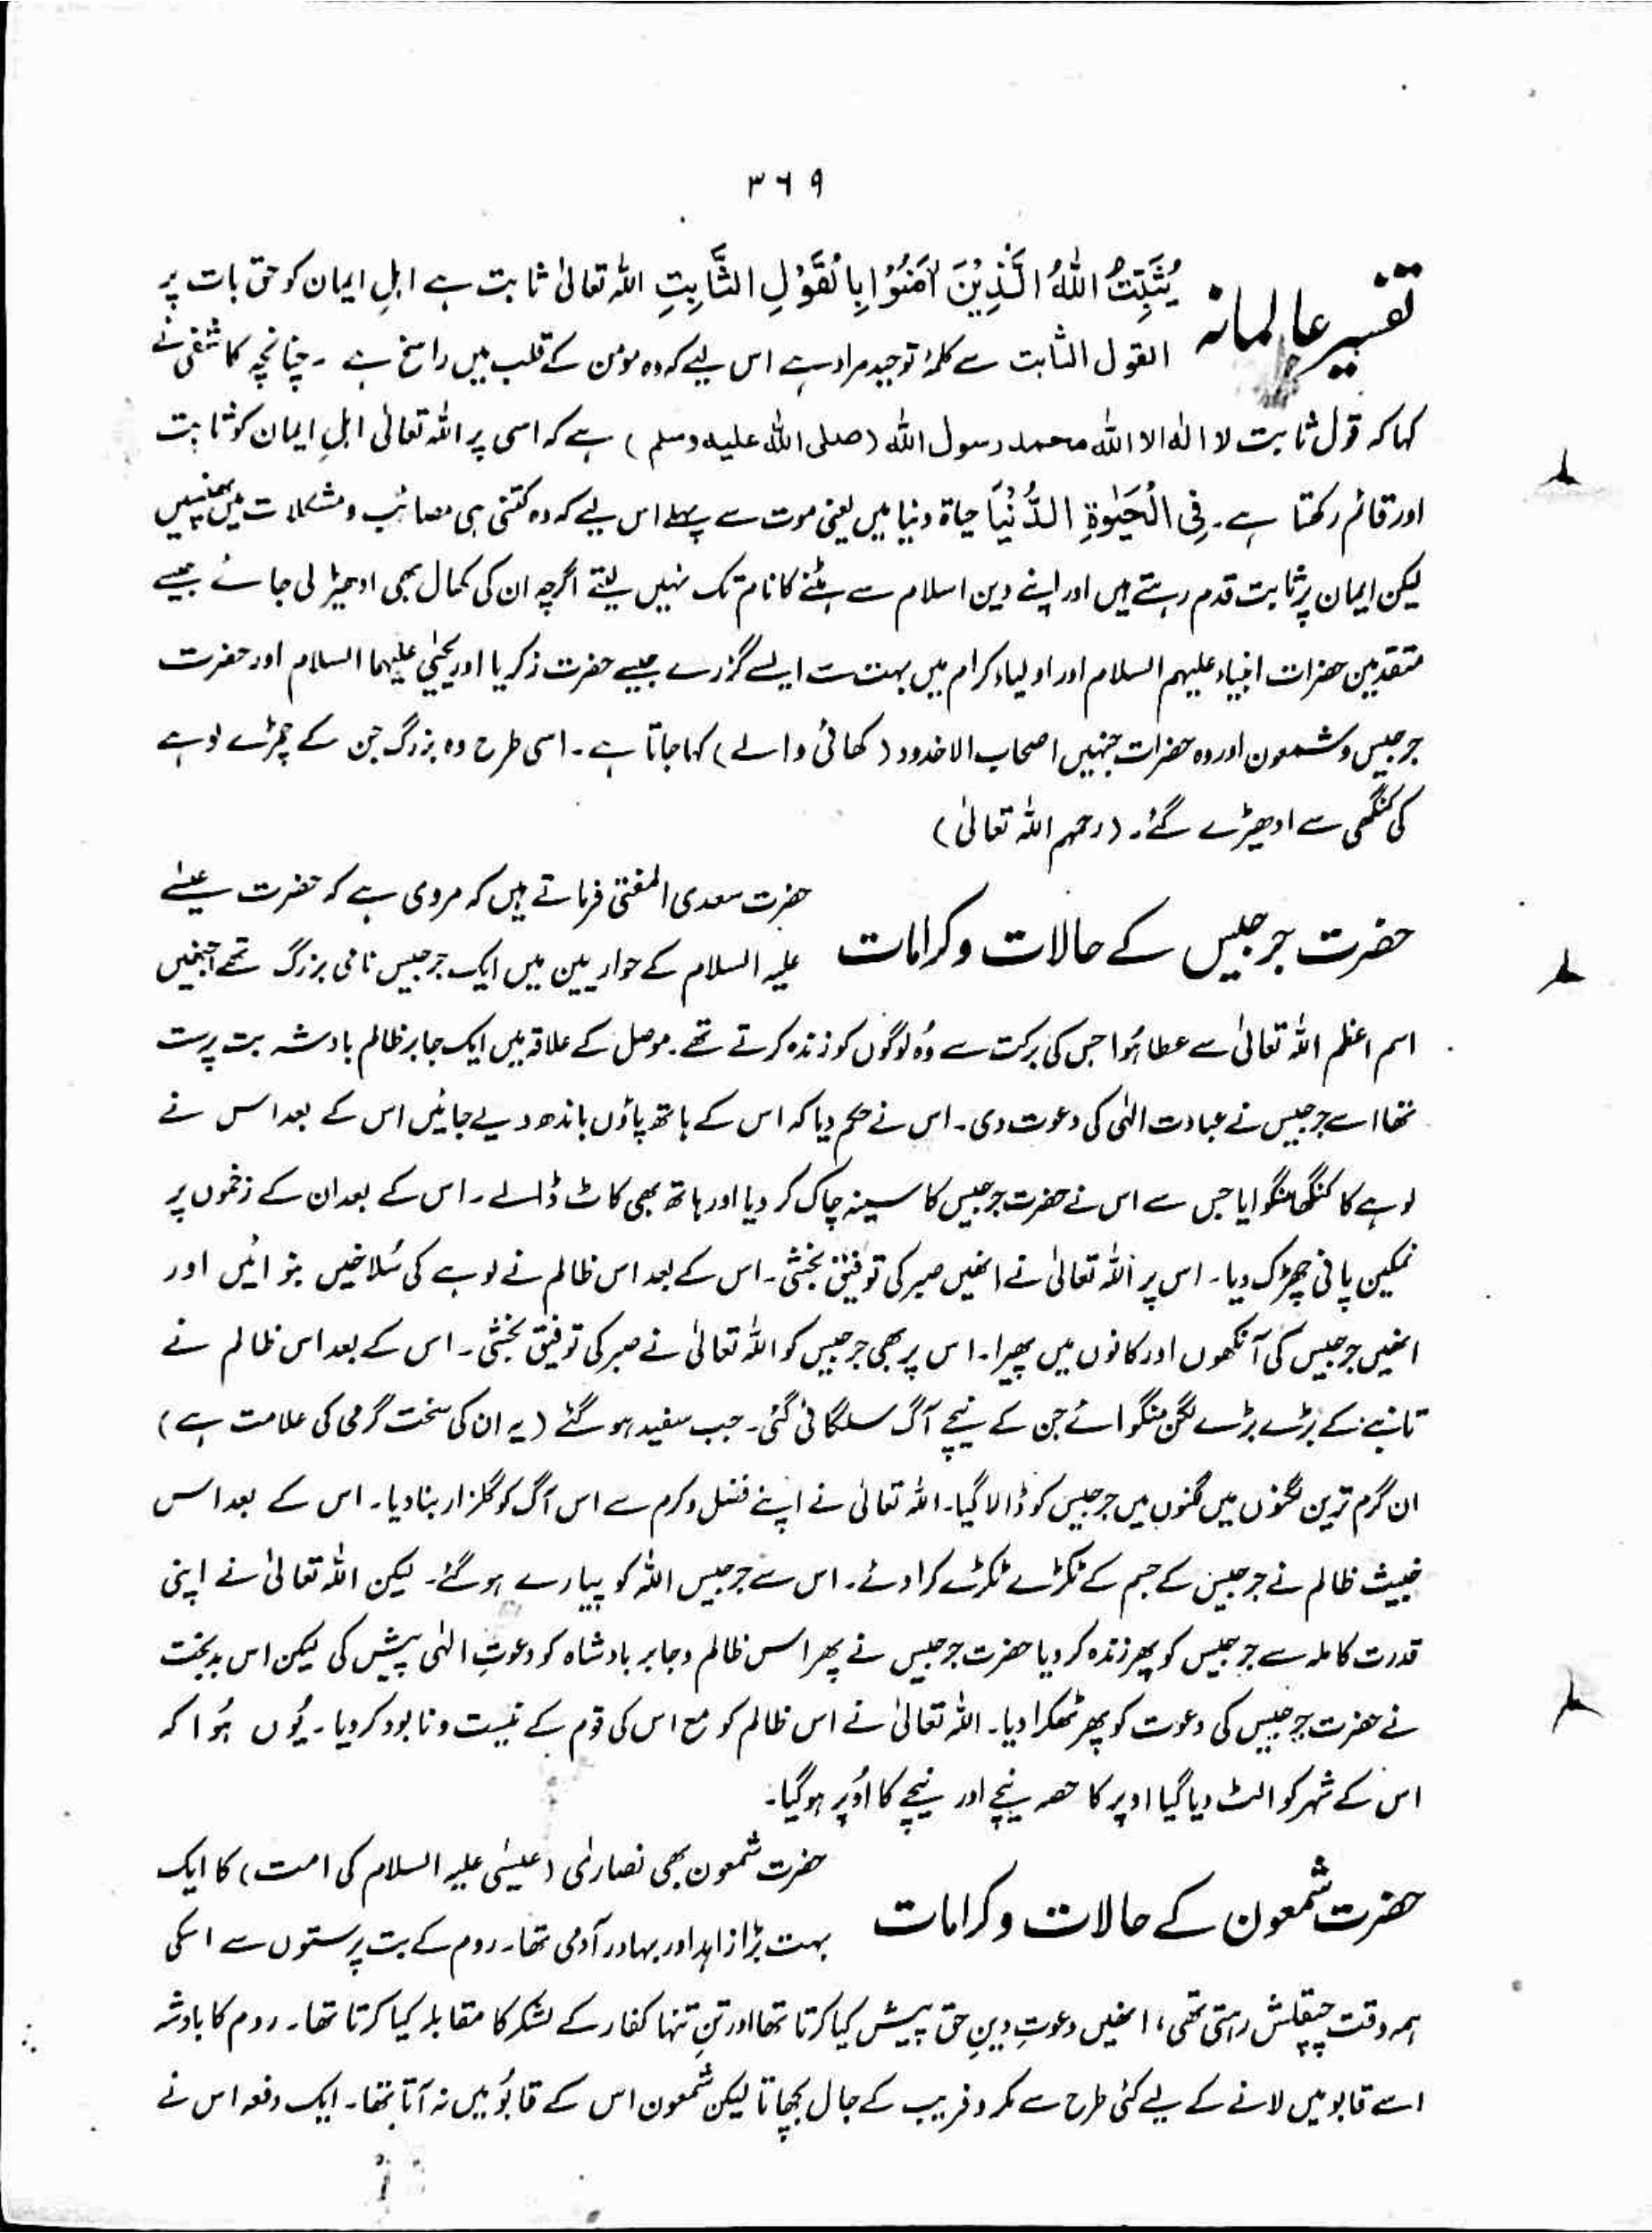 ۳۶۹
تفسیر عالمانہ
یُثَبِّتُ اللّٰهُ الَّذِیْنَ اٰمَنُوْا بِالْقَوْلِ الثَّابِتِ اللہ تعالیٰ ثابت ہے اہلِ ایمان کو حق بات پر
القول الثابت سے کلمۂ توحید مراد ہے اس لیے کہ وہ مومن کے قلب میں راسخ ہے ۔ چنانچہ کاشفی نے
کہا کہ قول ثابت لا الٰہ الا اللہ محمد رسول اللہ (صلی اللہ علیہ وسلم) ہے کہ اسی پر اللہ تعالیٰ اہلِ ایمان کو ثابت
اور قائم رکھتا ہے۔ فِی الْحَیٰوةِ الدُّنْیَا حیاۃ دنیا میں یعنی موت سے پہلے اس لیے کہ وہ کتنی ہی مصائب و مشکلات میں پھنسیں
لیکن ایمان پر ثابت قدم رہتے ہیں اور اپنے دین اسلام سے ہٹنے کا نام تک نہیں لیتے اگرچہ ان کی کھال بھی ادھیڑ لی جائے جیسے
متقدمین حضرات انبیاء علیہم السلام اور اولیاء کرام میں بہت سے ایسے گزرے جیسے حضرت زکریا اور یحییٰ علیہما السلام اور حضرت
جرجیس و شمعون اور وہ حضرات جنہیں اصحاب الاخدود (کھائی والے) کہا جاتا ہے۔ اسی طرح وہ بزرگ جن کے چمڑے لوہے
کی کنگھی سے ادھیڑے گئے۔ (رحمہم اللہ تعالیٰ)
حضرت جرجیس کے حالات و کرامات
حضرت سعدی المفتی فرماتے ہیں کہ مروی ہے کہ حضرت عیسٰے
علیہ السلام کے حواریین میں ایک جرجیس نامی بزرگ تھے جنھیں
اسم اعظم اللہ تعالیٰ سے عطا ہُوا جس کی برکت سے وُہ لوگوں کو زندہ کرتے تھے۔ موصل کے علاقہ میں ایک جابر ظالم بادشہ بت پرست
تھا اسے جرجیس نے عبادت الٰہی کی دعوت دی۔ اس نے حکم دیا کہ اس کے ہاتھ پاؤں باندھ دیے جائیں اس کے بعد اس نے
لوہے کا کنگھا منگوایا جس سے اس نے حضرت جرجیس کا سینہ چاک کر دیا اور ہاتھ بھی کاٹ ڈالے۔ اس کے بعد ان کے زخموں پر
نمکین پانی چھڑک دیا۔ اس پر اللہ تعالیٰ نے انھیں صبر کی توفیق بخشی۔ اس کے بعد اس ظالم نے لوہے کی سُلاخیں بنوائیں اور
انھیں جرجیس کی آنکھوں اور کانوں میں پھیرا۔ اس پر بھی جرجیس کو اللہ تعالیٰ نے صبر کی توفیق بخشی۔ اس کے بعد اس ظالم نے
تانبے کے بڑے بڑے لگن منگوائے جن کے نیچے آگ سلگائی گئی۔ جب سفید ہو گئے (یہ ان کی سخت گرمی کی علامت ہے)
ان گرم ترین لگنوں میں لگنوں میں جرجیس کو ڈالا گیا۔ اللہ تعالیٰ نے اپنے فضل و کرم سے اس آگ کو گلزار بنا دیا۔ اس کے بعد اس
خبیث ظالم نے جرجیس کے جسم کے ٹکڑے ٹکڑے کرا دئے۔ اس سے جرجیس اللہ کو پیارے ہو گئے۔ لیکن اللہ تعالیٰ نے اپنی
قدرت کاملہ سے جرجیس کو پھر زندہ کر دیا حضرت جرجیس نے پھر اس ظالم و جابر بادشاہ کو دعوتِ الٰہی پیش کی لیکن اس بدبخت
نے حضرت جرجیس کی دعوت کو پھر ٹھکرا دیا۔ اللہ تعالیٰ نے اس ظالم کو مع اس کی قوم کے نیست و نابود کر دیا۔ یُوں ہُوا کہ
اس کے شہر کو الٹ دیا گیا اوپر کا حصہ نیچے اور نیچے کا اُوپر ہو گیا۔
حضرت شمعون کے حالات و کرامات
حضرت شمعون بھی نصاریٰ (عیسیٰ علیہ السلام کی امت) کا ایک
بہت بڑا زاہد اور بہادر آدمی تھا۔ روم کے بت پرستوں سے اسکی
ہمہ وقت چپقلش رہتی تھی، انھیں دعوتِ دینِ حق پیش کیا کرتا تھا اور تنِ تنہا کفار کے لشکر کا مقابلہ کیا کرتا تھا۔ روم کا بادشہ
اسے قابو میں لانے کے لیے کئی طرح سے مکر و فریب کے جال بچھاتا لیکن شمعون اس کے قابُو میں نہ آتا تھا۔ ایک دفعہ اس نے